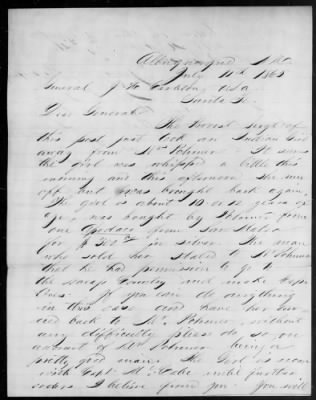 Albuquerque N.M.
July 11th 1865
General J. H. Carleton USA
Santa Fe
Dear General
The Provost Sergt of
this post just took an Indian Girl
away from Mrs It seems
the girl was whipped a little this
morning and this afternoon she run
off but was brought back again.
The girl is about 10 or 12 years of
age, was bought by from
one from San Mateo
for $ in silver. The man
who sold her stated to Mr
that he had permission to go to
the Navajo Country and make Cap-
tives. If you can do anything
in this case and have her tur-
ned back to Mr without
any difficulty please do so on
account of Mrs being a
pretty good man. The Girl is now
with Capt. until further
orders I believe from you. You will